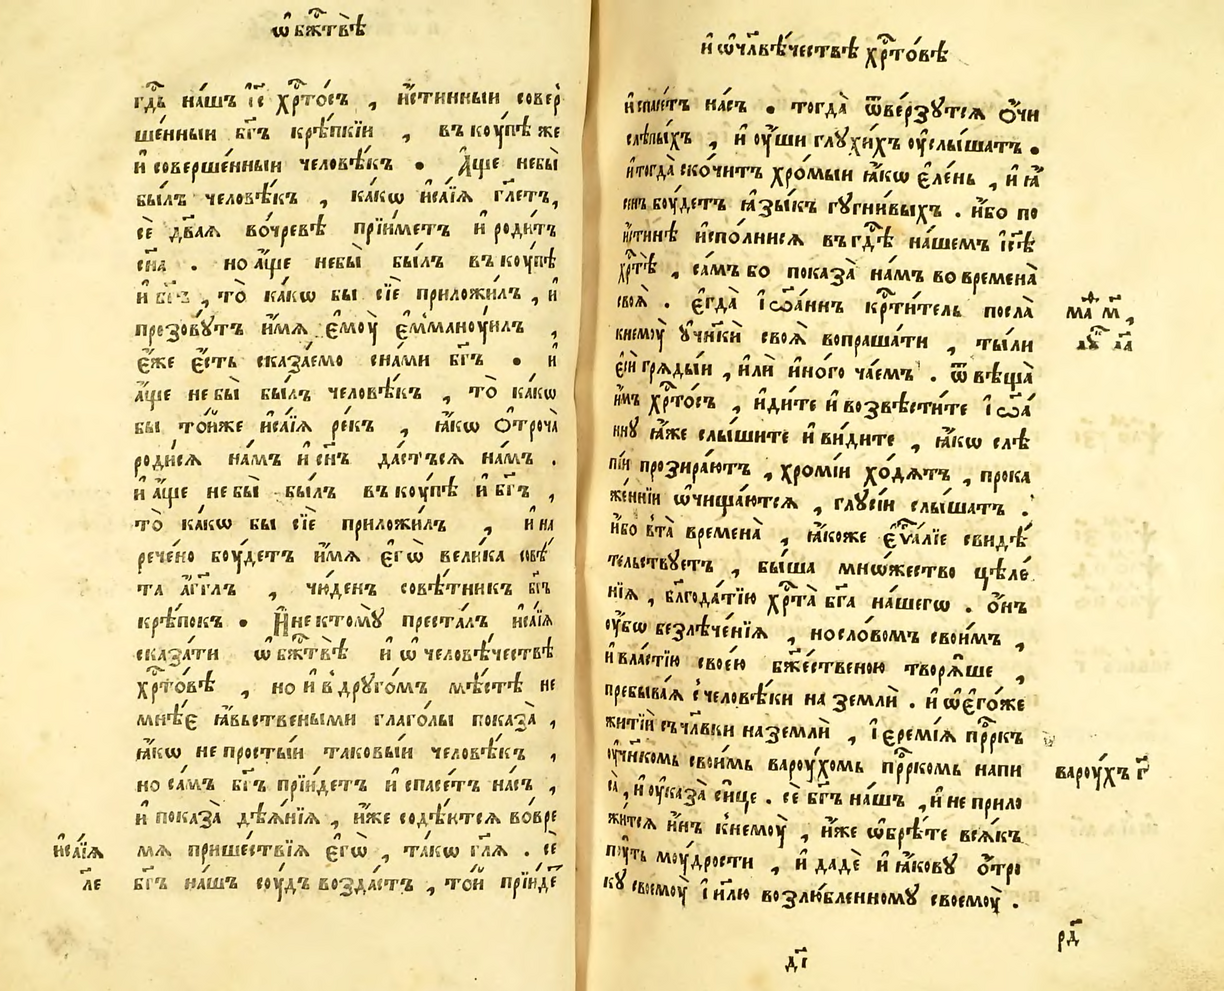 ѡ҆ бж҃твѣ̀
гд҇ь на́шъ і҆с҃ хрⷭ҇то́съ , и҆́стинныи совер
ше́нныи бг҃ъ крѣ́пкїи , въкꙋ́пѣ же
и҆ соверше́нныи человѣ́къ . А҆́ще небы̀
бы́лъ человѣ́къ , ка́кѡ и҆са́їѧ гл҃етъ,
сѐ дв҃аѧ во́чревѣ прїи́метъ и҆ роди́тъ
сн҃а . но а҆́ще небы̀ бы́лъ въкоу́пѣ
и҆ бг҃ъ , то̀ ка́кѡ бы сїѐ приложи́лъ , и҆
презовꙋ́тъ и҆́мѧ є҆моу̀ є҆мманоуи́лъ ,
є҆́же є҆́сть сказа́емо сна́ми бг҃ъ . и҆
а҆́ще не бы̀ бы́лъ человѣ́къ , то̀ ка́кѡ
бы то́йже и҆са́їѧ ре́къ , ꙗ҆́кѡ ѻ҆троча̀
роди́сѧ на́мъ и҆ сн҃ъ да́стъсѧ на́мъ .
и҆ а҆́ще не бы̀ бы́лъ въкоу́пѣ и҆ бг҃ъ ,
то̀ ка́кѡ бы сїѐ приложи́лъ , и҆ на
рече́но боу́детъ и҆́мѧ є҆гѡ̀ вели́ка совѣ́
та а҆́гг҃лъ , чю́денъ совѣ́тникъ бг҃ъ
крѣ́покъ . И҆ не ктомꙋ̀ преста́лъ и҆са́їѧ
сказа́ти ѡ҆ бж҃твѣ̀ и҆ ѡ҆ человѣ́чествѣ
хрⷭ҇то́вѣ , но и҆ в̾ дрꙋго́мъ мѣ́стѣ не
мнѣ́е ꙗ҆́вьствеными глаго́лы показа̀ ,
ꙗ҆́кѡ не просты́и таковы́и человѣ́къ ,
но са́мъ бг҃ъ прїи́детъ и҆ спасе́тъ на́съ ,
и҆ показа̀ дѣѧ́нїѧ , и҆́же содѣ́ютсѧ во́вре
мѧ прише́ствїѧ є҆гѡ̀ , та́кѡ гл҃ѧ . сѐ
бг҃ъ на́шъ соу́дъ возда́стъ , то́и прїи́де
и҆са́їѧ
л҃е
и҆ ѡ҆ чл҃вѣ́чествѣ хрⷭ҇то́вѣ
и҆ спасе́тъ на́съ . тогда̀ ѿве́рзꙋтсѧ ѻ҆́чи
слѣпы́хъ , и҆ оу҆́ши глꙋхи́хъ оу҆слы́шатъ .
и҆ тогда̀ ско́читъ хро́мыи ꙗ҆́кѡ є҆ле́нь , и҆ ꙗ҆́
сенъ боу́детъ ꙗ҆зы́къ гꙋгни́выхъ . и҆́бо по
и҆́стинѣ и҆спо́лнисѧ въ гд҇ѣ на́шемъ і҆с҃ѣ
хрⷭ҇тѣ̀ , са́мъ бо показа̀ на́мъ во времена̀
своѧ̀ . є҆гда̀ і҆ѡа́ннъ крⷭ҇ти́тель посла̀
к немоу̀ ᲂу҆ч҃нкѝ своѧ̀ вопраша́ти , ты́ли
є҆сѝ грѧды́и , и҆лѝ и҆но́го ча́емъ . ѿвѣща̀
и҆́мъ хрⷭ҇то́съ , и҆ди́те и҆ возвѣсти́те і҆ѡа́
ннꙋ ꙗ҆́же слы́шите и҆ ви́дите , ꙗ҆́кѡ слѣ
пі́и прозира́ютъ , хромі́и хо́дѧтъ , прока
же́ннїи ѡ҆чища́ютсѧ , глꙋсі́и слы́шатъ .
и҆́бо в̾та̀ времена̀ , ꙗ҆́коже є҆ѵⷢ҇а́лїе свидѣ́
тельствꙋетъ , бы́ша мно́жество цѣле́
нїѧ , бл҃года́тїю хрⷭ҇та̀ бг҃а на́шегѡ . ѻ҆́нъ
оу҆́бѡ безлѣче́нїѧ , но сло́вомъ свои́мъ ,
и҆ вла́стїю свое́ю бж҃е́ственою творѧ́ше ,
пребыва́ѧ с̾человѣ́ки на землѝ . и҆ ѡ҆ є҆го́же
житїѝ съ чл҃вки на землѝ , і҆еремі́ѧ прⷪ҇ркъ
оу҆ч҃нкомь свои́мь вароу́хомь прⷪ҇ркомь напи
са̀ , и҆ оу҆каза̀ си́це . сѐ бг҃ъ на́шъ , и҆ не прило
жи́тсѧ и҆́нъ к̾немоу̀ , и҆́же ѡ҆брѣ́те всѧ́къ
пꙋ́ть моу́дрости , и҆ дадѐ и҆ ꙗ҆́ковꙋ ѻ҆́тро
кꙋ своемоу̀ і҆и҃лю возлю́бленномꙋ своемоу̀ .
маⷴ҇ м҃,
лꙋⷦ҇ л҃а
вароу́хъ г҃
рд҃
дї҃